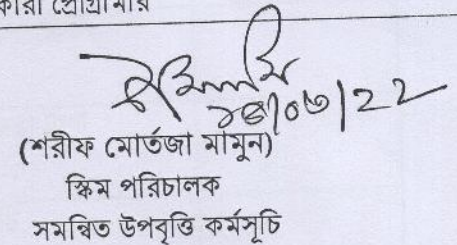 কারী প্রোগ্রামার
(শরীফ মোর্তজা মামুন)
স্কিম পরিচালক
সমন্বিত উপবৃত্তি কর্মসূচি